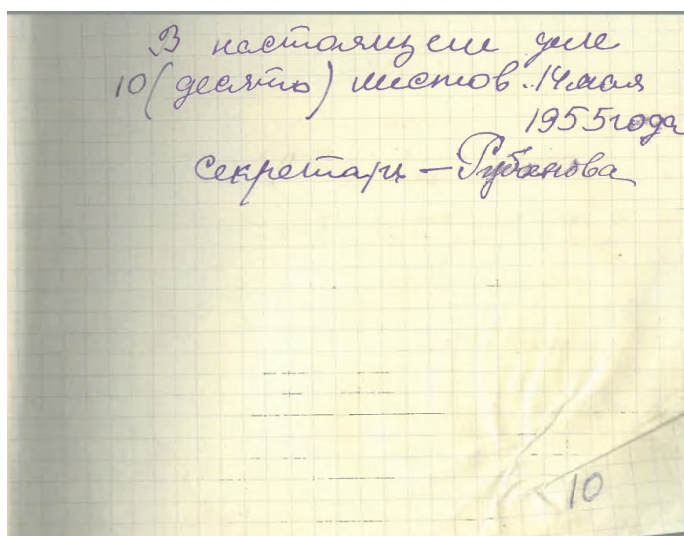 В настоящем деле
10 (десять) листов. 14 мая
1955 года
Секретарь – Рубанова
10